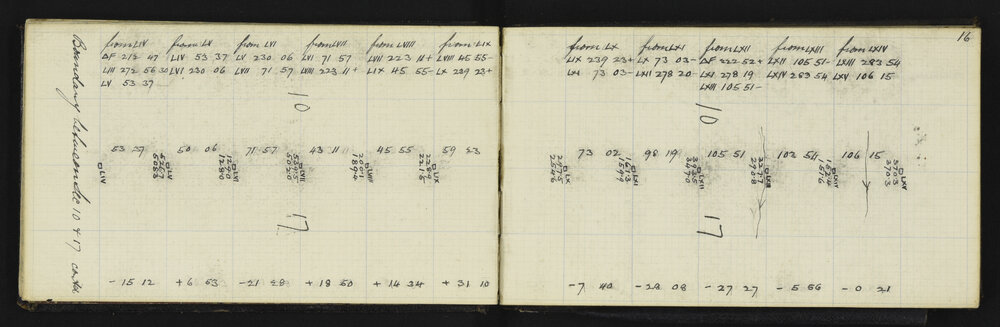 Boundary between Sec 10 & 17 contd
from LIV from LV from LVI from LVII from LVIII from LIX
ΔF 212 47 LIV 53 37 LV 230 06 LVI 71 57 LVII 223 11+ LVIII 45 55-
LIII 272 56 30 LVI 230 06 LVII 71 57 LVIII 223 11+ LIX 45 55- LX 239 23+
LV 53 37
10
53 37 50 06 71 57 43 11 45 55 59 23
□ LIV
□ LV
□ LVI
□ LVII
□ LVIII
□ LIX
17
- 15 12 + 6 53 - 21 28 + 18 50 + 14 34 + 31 10
16
from LX from LXI from LXII from LXIII from LXIV
LIX 239 23+ LX 73 03- ΔF 222 52+ LXII 105 51- LXIII 283 54
LXI 73 03- LXII 278 20- LXI 278 19 LXIV 283 54 LXV 106 15
LXIII 105 51-
10
73 02 98 19 105 51 103 54 106 15
□ LX
□ LXI
□ LXII
□ LXIII
□ LXIV
□ LXV
17
- 7 40 - 28 08 - 27 27 - 5 56 - 0 21